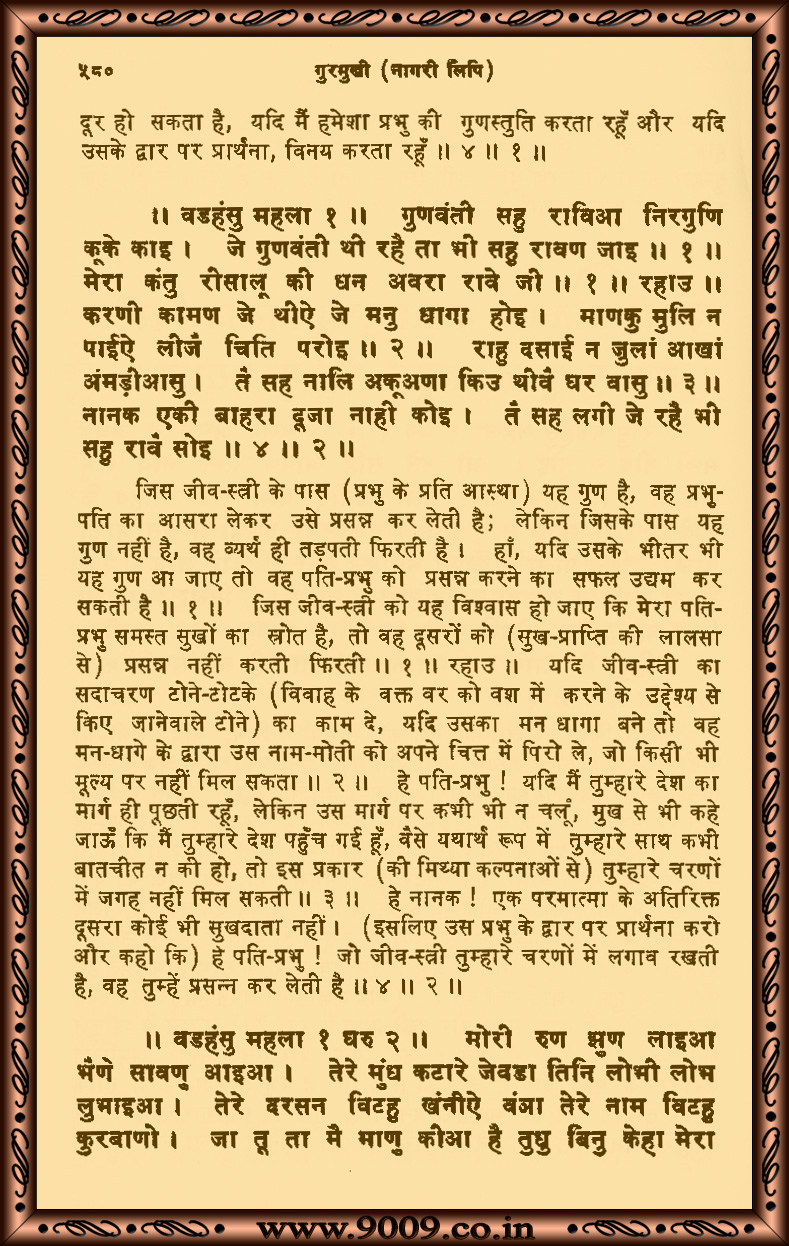 ५८० गुरमुखी (नागरी लिपि)
दूर हो सकता है, यदि मैं हमेशा प्रभु की गुणस्तुति करता रहूँ और यदि
उसके द्वार पर प्रार्थना, विनय करता रहूँ ॥ ४ ॥ १ ॥
॥ वडहंसु महला १ ॥ गुणवंती सहु राविआ निरगुणि
कूके काइ । जे गुणवंती थी रहै ता भी सहु रावण जाइ ॥ १ ॥
मेरा कंतु रीसालू की धन अवरा रावे जी ॥ १ ॥ रहाउ ॥
करणी कामण जे थीऐ जे मनु धागा होइ । माणकु मुलि न
पाईऐ लीजै चिति परोइ ॥ २ ॥ राहु दसाई न जुलां आखां
अंमड़ीआसु । तै सह नालि अकूअणा किउ थीवै घर वासु ॥ ३ ॥
नानक एकी बाहरा दूजा नाही कोइ । तै सह लगी जे रहै भी
सहु रावै सोइ ॥ ४ ॥ २ ॥
जिस जीव-स्त्री के पास (प्रभु के प्रति आस्था) यह गुण है, वह प्रभु-
पति का आसरा लेकर उसे प्रसन्न कर लेती है; लेकिन जिसके पास यह
गुण नहीं है, वह व्यर्थ ही तड़पती फिरती है । हाँ, यदि उसके भीतर भी
यह गुण आ जाए तो वह पति-प्रभु को प्रसन्न करने का सफल उद्यम कर
सकती है ॥ १ ॥ जिस जीव-स्त्री को यह विश्वास हो जाए कि मेरा पति-
प्रभु समस्त सुखों का स्रोत है, तो वह दूसरों को (सुख-प्राप्ति की लालसा
से) प्रसन्न नहीं करती फिरती ॥ १ ॥ रहाउ ॥ यदि जीव-स्त्री का
सदाचरण टोने-टोटके (विवाह के वक्त वर को वश में करने के उद्देश्य से
किए जानेवाले टोने) का काम दे, यदि उसका मन धागा बने तो वह
मन-धागे के द्वारा उस नाम-मोती को अपने चित्त में पिरो ले, जो किसी भी
मूल्य पर नहीं मिल सकता ॥ २ ॥ हे पति-प्रभु ! यदि मैं तुम्हारे देश का
मार्ग ही पूछती रहूँ, लेकिन उस मार्ग पर कभी भी न चलूं, मुख से भी कहे
जाऊँ कि मैं तुम्हारे देश पहुँच गई हूँ, वैसे यथार्थ रूप में तुम्हारे साथ कभी
बातचीत न की हो, तो इस प्रकार (की मिथ्या कल्पनाओं से) तुम्हारे चरणों
में जगह नहीं मिल सकती ॥ ३ ॥ हे नानक ! एक परमात्मा के अतिरिक्त
दूसरा कोई भी सुखदाता नहीं । (इसलिए उस प्रभु के द्वार पर प्रार्थना करो
और कहो कि) हे पति-प्रभु ! जो जीव-स्त्री तुम्हारे चरणों में लगाव रखती
है, वह तुम्हें प्रसन्न कर लेती है ॥ ४ ॥ २ ॥
॥ वडहंसु महला १ घरु २ ॥ मोरी रुण झुण लाइआ
भैणे सावणु आइआ । तेरे मुंध कटारे जेवडा तिनि लोभी लोभ
लुभाइआ । तेरे दरसन विटहु खंनीऐ वंञा तेरे नाम विटहु
कुरबाणो । जा तू ता मै माणु कीआ है तुधु बिनु केहा मेरा
www.9009.co.in